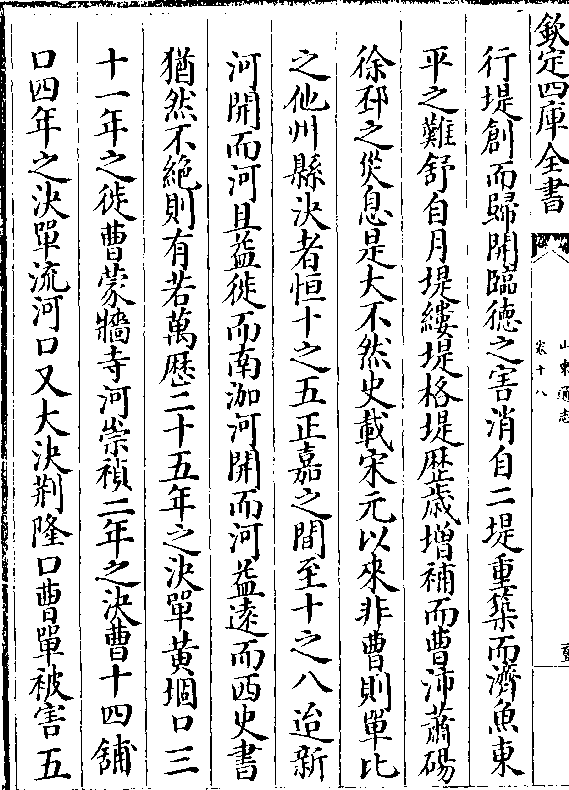 欽定四庫全書
山東通志
卷十八
行堤創而歸開臨德之害消自二堤重築而濟魚東
平之難舒自月堤縷堤格堤歷歲增補而曹沛蕭碭
徐邳之災息是大不然史載宋元以來非曹則單比
之他州縣決者恒十之五正嘉之間至十之八迨新
河開而河且益徙而南泇河開而河益遠而西史書
猶然不絶則有若萬歷二十五年之決單黃堌口三
十一年之徙曹蒙牆寺河崇禎二年之決曹十四舖
口四年之決單流河口又大決荆隆口曹單被害五